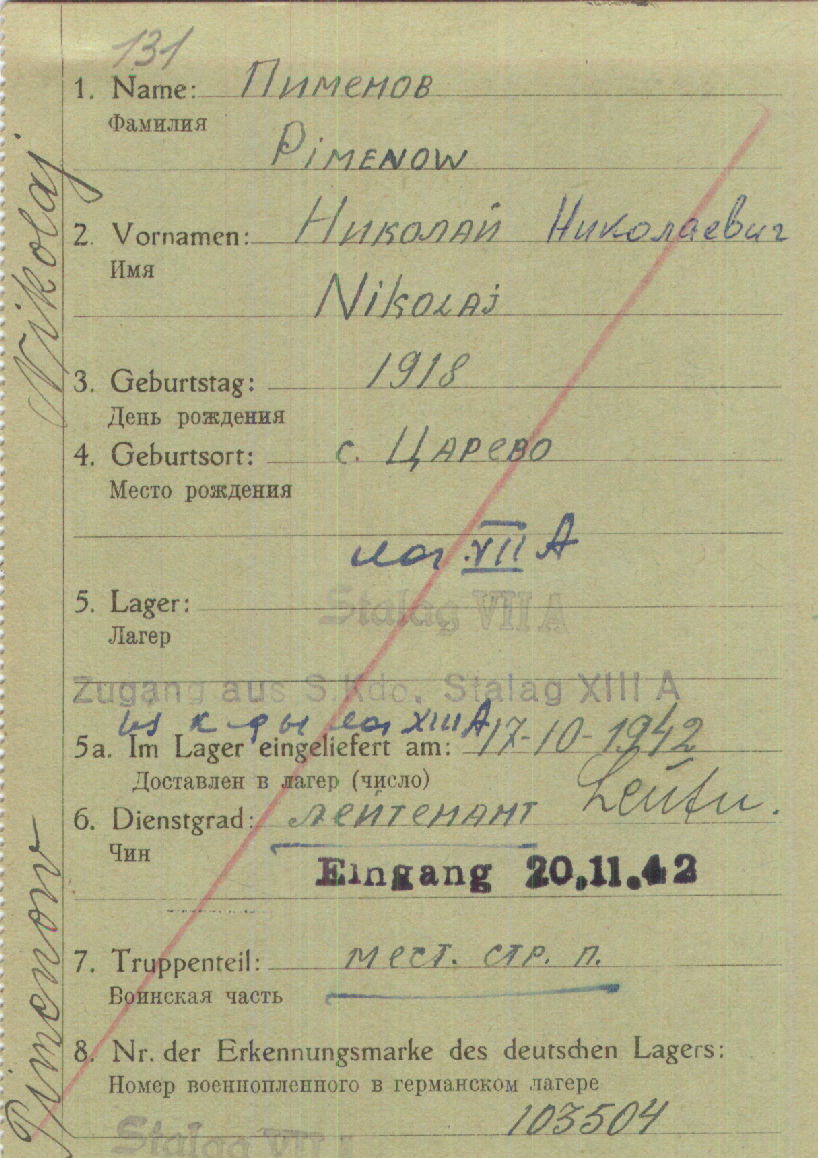 131
1. Name: Пименов
Фамилия
Pimenow
2. Vornamen: Николай Николаевич
Имя
Nikolaj
3. Geburtstag: 1918
День рождения
4. Geburtsort: с. Царево
Место рождения
лаг. VII A
5. Lager: Stalag VII A
Лагерь
Zugang aus S.Kdo. Stalag XIII A
из к-ды лаг XIII A
5a. Im Lager eingeliefert am: 17-10-1942
Доставлен в лагер (число)
6. Dienstgrad: лейтенант Leutn.
Чин
Eingang 20.11.42
7. Truppenteil: мест. стр. п.
Воинская часть
8. Nr. der Erkennungsmarke des deutschen Lagers:
Номер военнопленного в германском лагере
103504
Stalag VII A
Pimenow Nikolaj